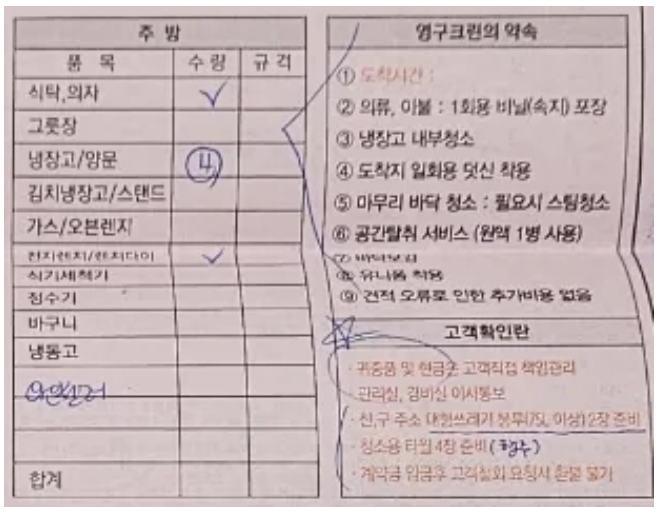 주 방
품 목 수 량 규 격
식탁,의자 ✓
그릇장
냉장고/양문 ④
김치냉장고/스탠드
가스/오븐렌지
전자렌지/렌지다이 ✓
식기세척기
정수기
바구니
냉동고
와인셀러
합계
영구크린의 약속
① 도착시간 :
② 의류, 이불 : 1회용 비닐(속지) 포장
③ 냉장고 내부청소
④ 도착지 일회용 덧신 착용
⑤ 마무리 바닥 청소 : 필요시 스팀청소
⑥ 공간탈취 서비스 (원액 1병 사용)
⑦
⑧ 유니폼 착용
⑨ 견적 오류로 인한 추가비용 없음
고객확인란
· 귀중품 및 현금은 고객직접 책임관리
· 관리실, 경비실 이사통보
· 신,구 주소 대형쓰레기 봉투(75L 이상) 2장 준비
· 청소용 타월 4장 준비 (행주)
· 계약금 입금후 고객철회 요청시 환불 불가